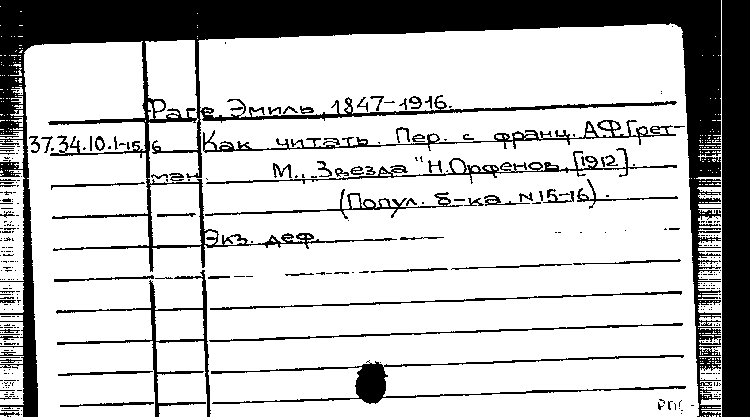 Фаге, Эмиль, 1847-1916.
37.34.10.1-15,16 Как читать. Пер. с франц. А.Ф.Грет-
ман М., "Звезда" Н.Орфенов, [1912].
(Попул. б-ка. N 15-16).
Экз. деф.